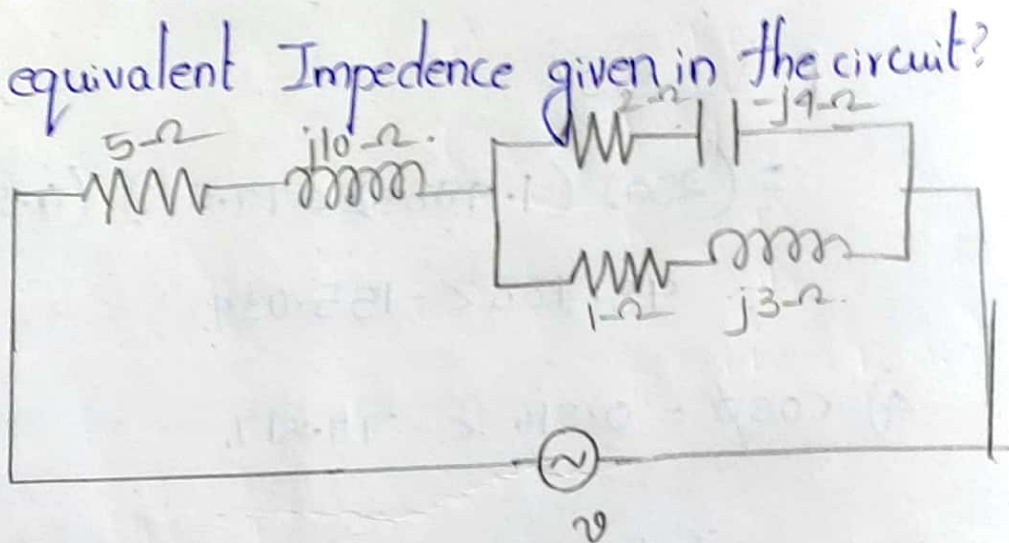 equivalent Impedence given in the circuit?
5-Ω j10-Ω. 2-Ω -j4-Ω
1-Ω j3-Ω.
v